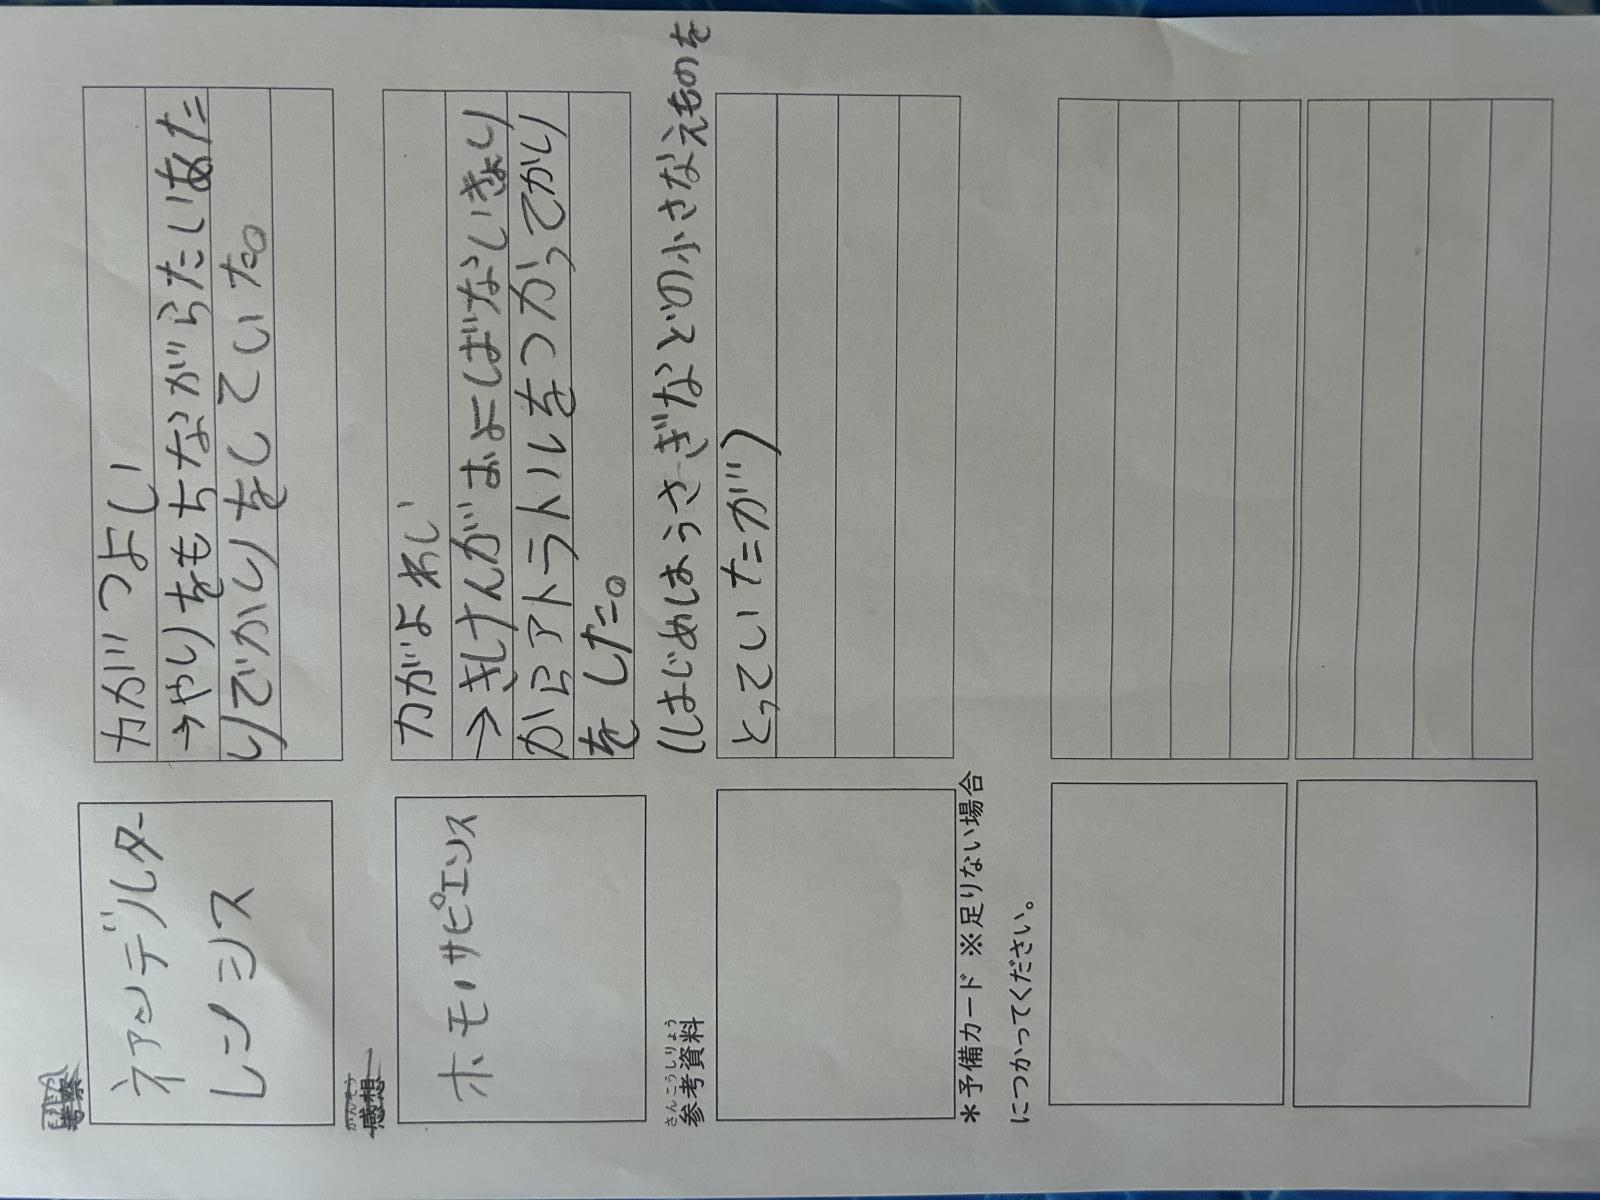 ネアンデルター
レンシス
力がつよい
→やりをもちながらたいあた
りでかりをしていた。
感想
かんそう
ホモ・サピエンス
力がよわい
→きけんがおよばないきょり
からアトラトルをつかってかり
をした。
(はじめはうさぎなどの小さなえものを
とっていたが)
さんこうしりょう
参考資料
*予備カード ※足りない場合
につかってください。